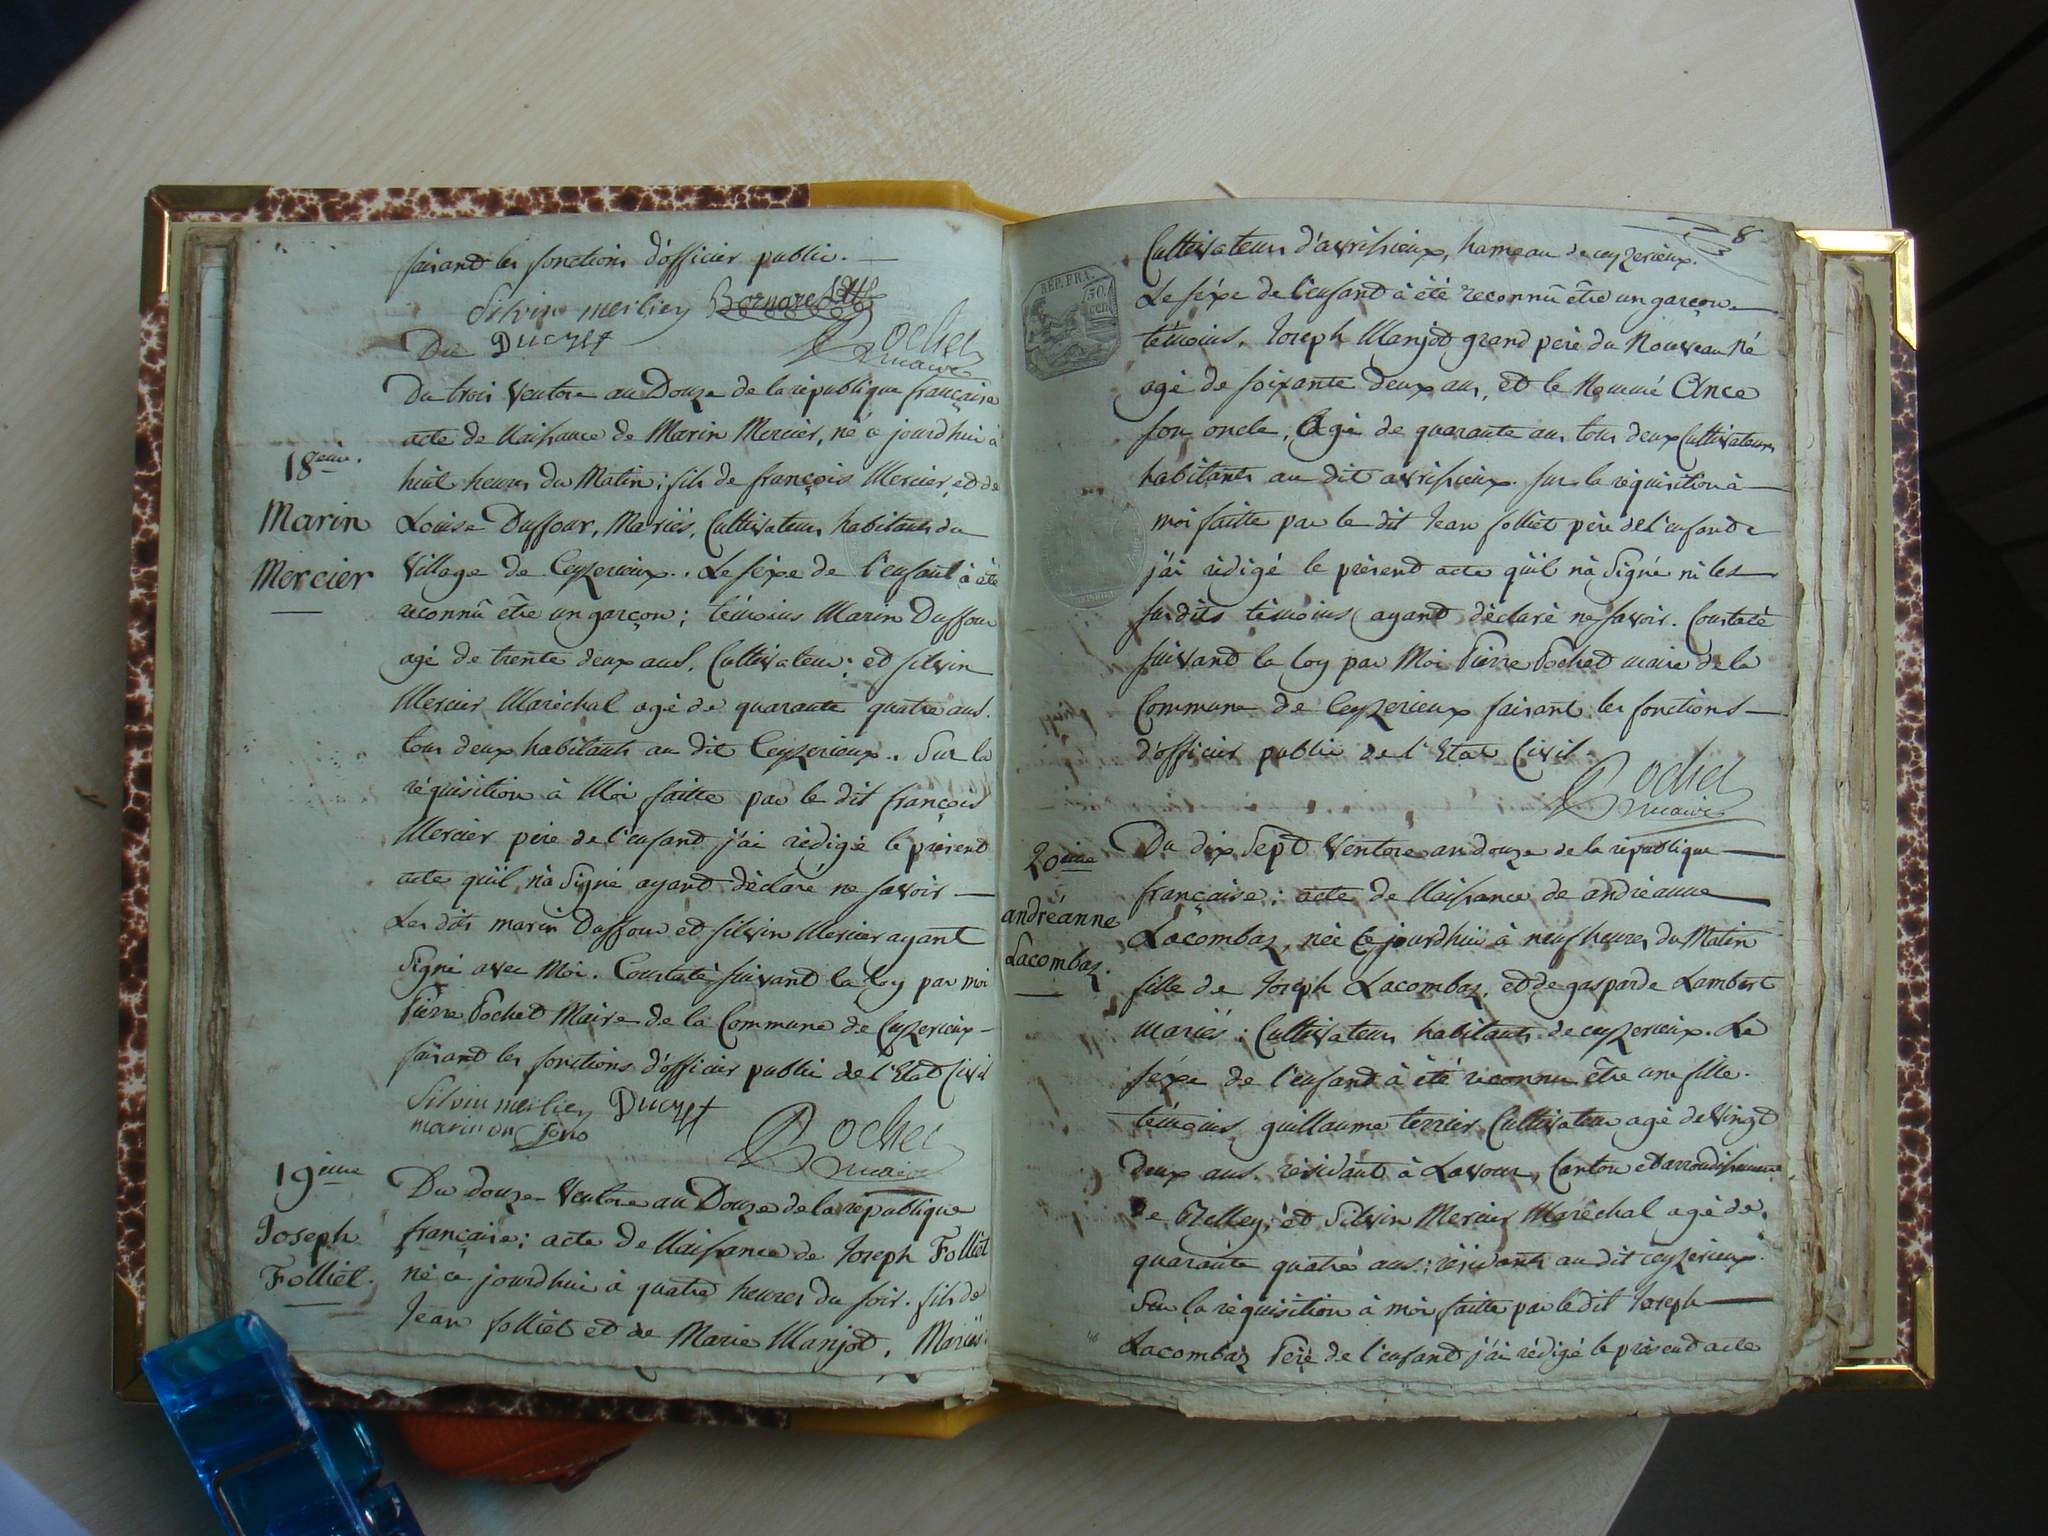 faisant les fonctions d'officier public.
Silvin mercier Bornare
Du Ducret Pochet
maire
Du trois Ventose an Douze de la république française
acte de Naissance de Marin Mercier, né ce jourdhui à
18eme.
huit heures du Matin; fils de françois Mercier, et de
Marin
Louise Duffour, Mariés, Cultivateurs habitants du
Mercier
Village de Ceyzerieux.. Le séxe de l'enfant à été
reconnû être un garçon; témoins Marin Duffour
agé de trente deux ans, Cultivateur; et silvin
Mercier Maréchal agé de quarante quatre ans.
tous deux habitants au dit Ceyzerieux.. Sur la
réquisition à Moi faitte par le dit françois
Mercier père de l'enfant j'ai rédigé le présent
acte qu'il n'à Signé ayant déclaré ne savoir
Les dits marin Duffour et silvin Mercier ayant
Signé avec Moi. Constaté suivant la loy par moi
Pierre Pochet Maire de la Commune de Ceyzerieux
faisant les fonctions d'officier public de l'Etat Civil
Silvin mercier Ducret
marin Pochet
maire
19ème
Du douze Ventose an Douze de la république
Joseph
française; acte de Naissance de Joseph Folliet
Folliet.
né ce jourdhui à quatre heures du soir. fils de
Jean folliet et de Marie Manjot, Mariés
8
Cultivateurs d'avrissieux, hameau de ceyzerieux.
REP. FRA. 50 cen.
Le séxe de l'enfant à été reconnû être un garçon
témoins, Joseph Manjot grand père du Nouveau Né
agé de soixante deux ans, et le Nommé Ance
son oncle, Agé de quarante ans tous deux Cultivateurs
habitants au dit avrissieux. sur la réquisition à
moi faitte par le dit Jean folliet père de l'enfant
j'ai rédigé le présent acte qu'il n'à Signé ni les
susdits témoins ayant déclaré ne savoir. Constaté
suivant la loy par Moi Pierre Pochet maire de la
Commune de Ceyzerieux faisant les fonctions
d'officier public de l'Etat Civil.
Pochet
maire
20ème
Du dix Sept Ventose an douze de la république
française; acte de Naissance de andréanne
andréanne
Lacombaz, née ce jourdhui à neuf heures du Matin
Lacombaz.
fille de Joseph Lacombaz, et de gasparde Lambert
mariés; Cultivateurs habitants de ceyzerieux. Le
séxe de l'enfant à été reconnu être une fille.
témoins guillaume terrier Cultivateur agé de Vingt
deux ans. résidant à Lavour, Canton et arrondissement
de Belley; et Silvin Mercier Maréchal agé de
quarante quatre ans; résidants au dit ceyzerieux.
Sur la réquisition à moi faitte par le dit Joseph
Lacombaz Père de l'enfant j'ai rédigé le présent acte